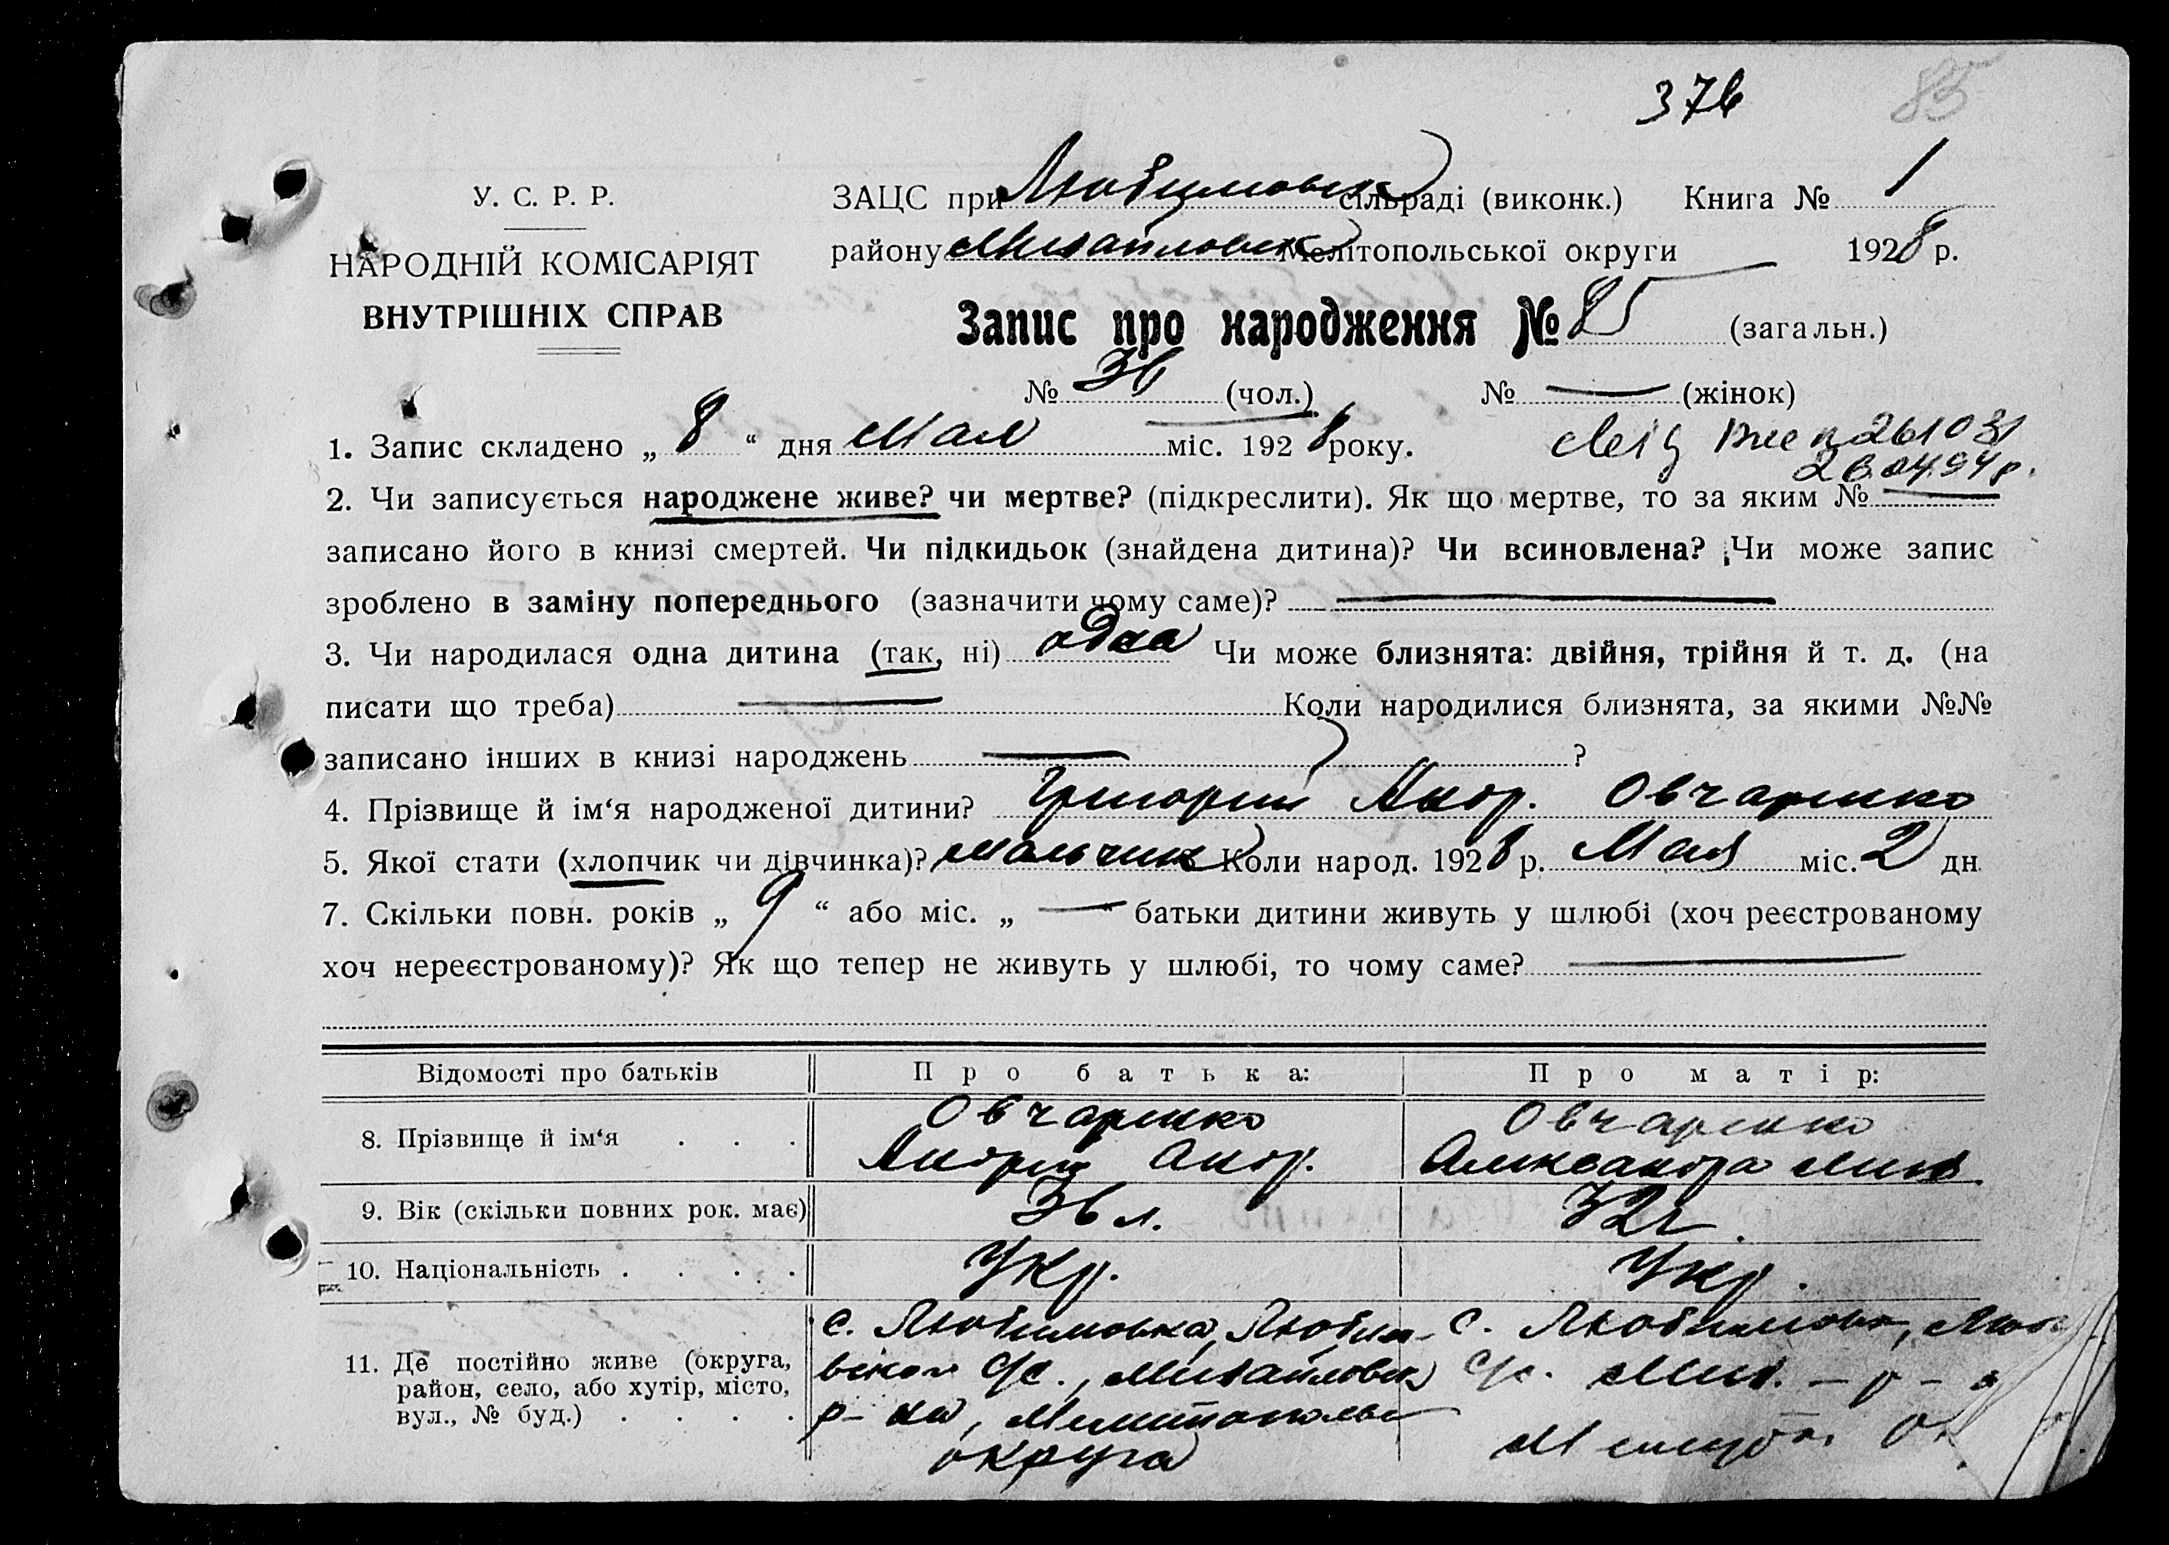 376 85
У. С. Р. Р.
НАРОДНІЙ КОМІСАРІЯТ
ВНУТРІШНІХ СПРАВ
ЗАЦС при Любимовск сільраді (виконк.) Книга № 1
району Михайловск Мелітопольської округи 1928 р.
Запис про народження № 85 (загальн.)
№ 36 (чол.) № — (жінок)
1. Запис складено „ 8 “ дня Мая міс. 1928 року.
2. Чи записується народжене живе? чи мертве? (підкреслити). Як що мертве, то за яким № —
записано його в книзі смертей. Чи підкидьок (знайдена дитина)? Чи всиновлена? Чи може запис
зроблено в заміну попереднього (зазначити чому саме)? —
3. Чи народилася одна дитина (так, ні) одна Чи може близнята: двійня, трійня й т. д. (на
писати що треба) — Коли народилися близнята, за якими №№
записано інших в книзі народжень — ?
4. Прізвище й ім‘я народженої дитини? Григорий Андр. Овчаренко
5. Якої стати (хлопчик чи дівчинка)? мальчик Коли народ. 1928 р. Мая міс. 2 дн
7. Скільки повн. років „ 9 “ або міс. „ — “ батьки дитини живуть у шлюбі (хоч реєстрованому
хоч нереєстрованому)? Як що тепер не живуть у шлюбі, то чому саме? —
Відомості про батьків Про батька: Про матір:
8. Прізвище й ім‘я . . . Овчаренко Андрей Андр. Овчаренко Александра Мих.
9. Вік (скільки повних рок. має) 36 л. 32 г.
10. Національність . . . . Укр. Укр.
11. Де постійно живе (округа,
район, село, або хутір, місто,
вул., № буд.) . . . .
с. Любимовка, Любим-
вском с/с., Михайловск
р-на, Мелитопольс
округа
с. Любимовка,
с/с. Мих. - р-